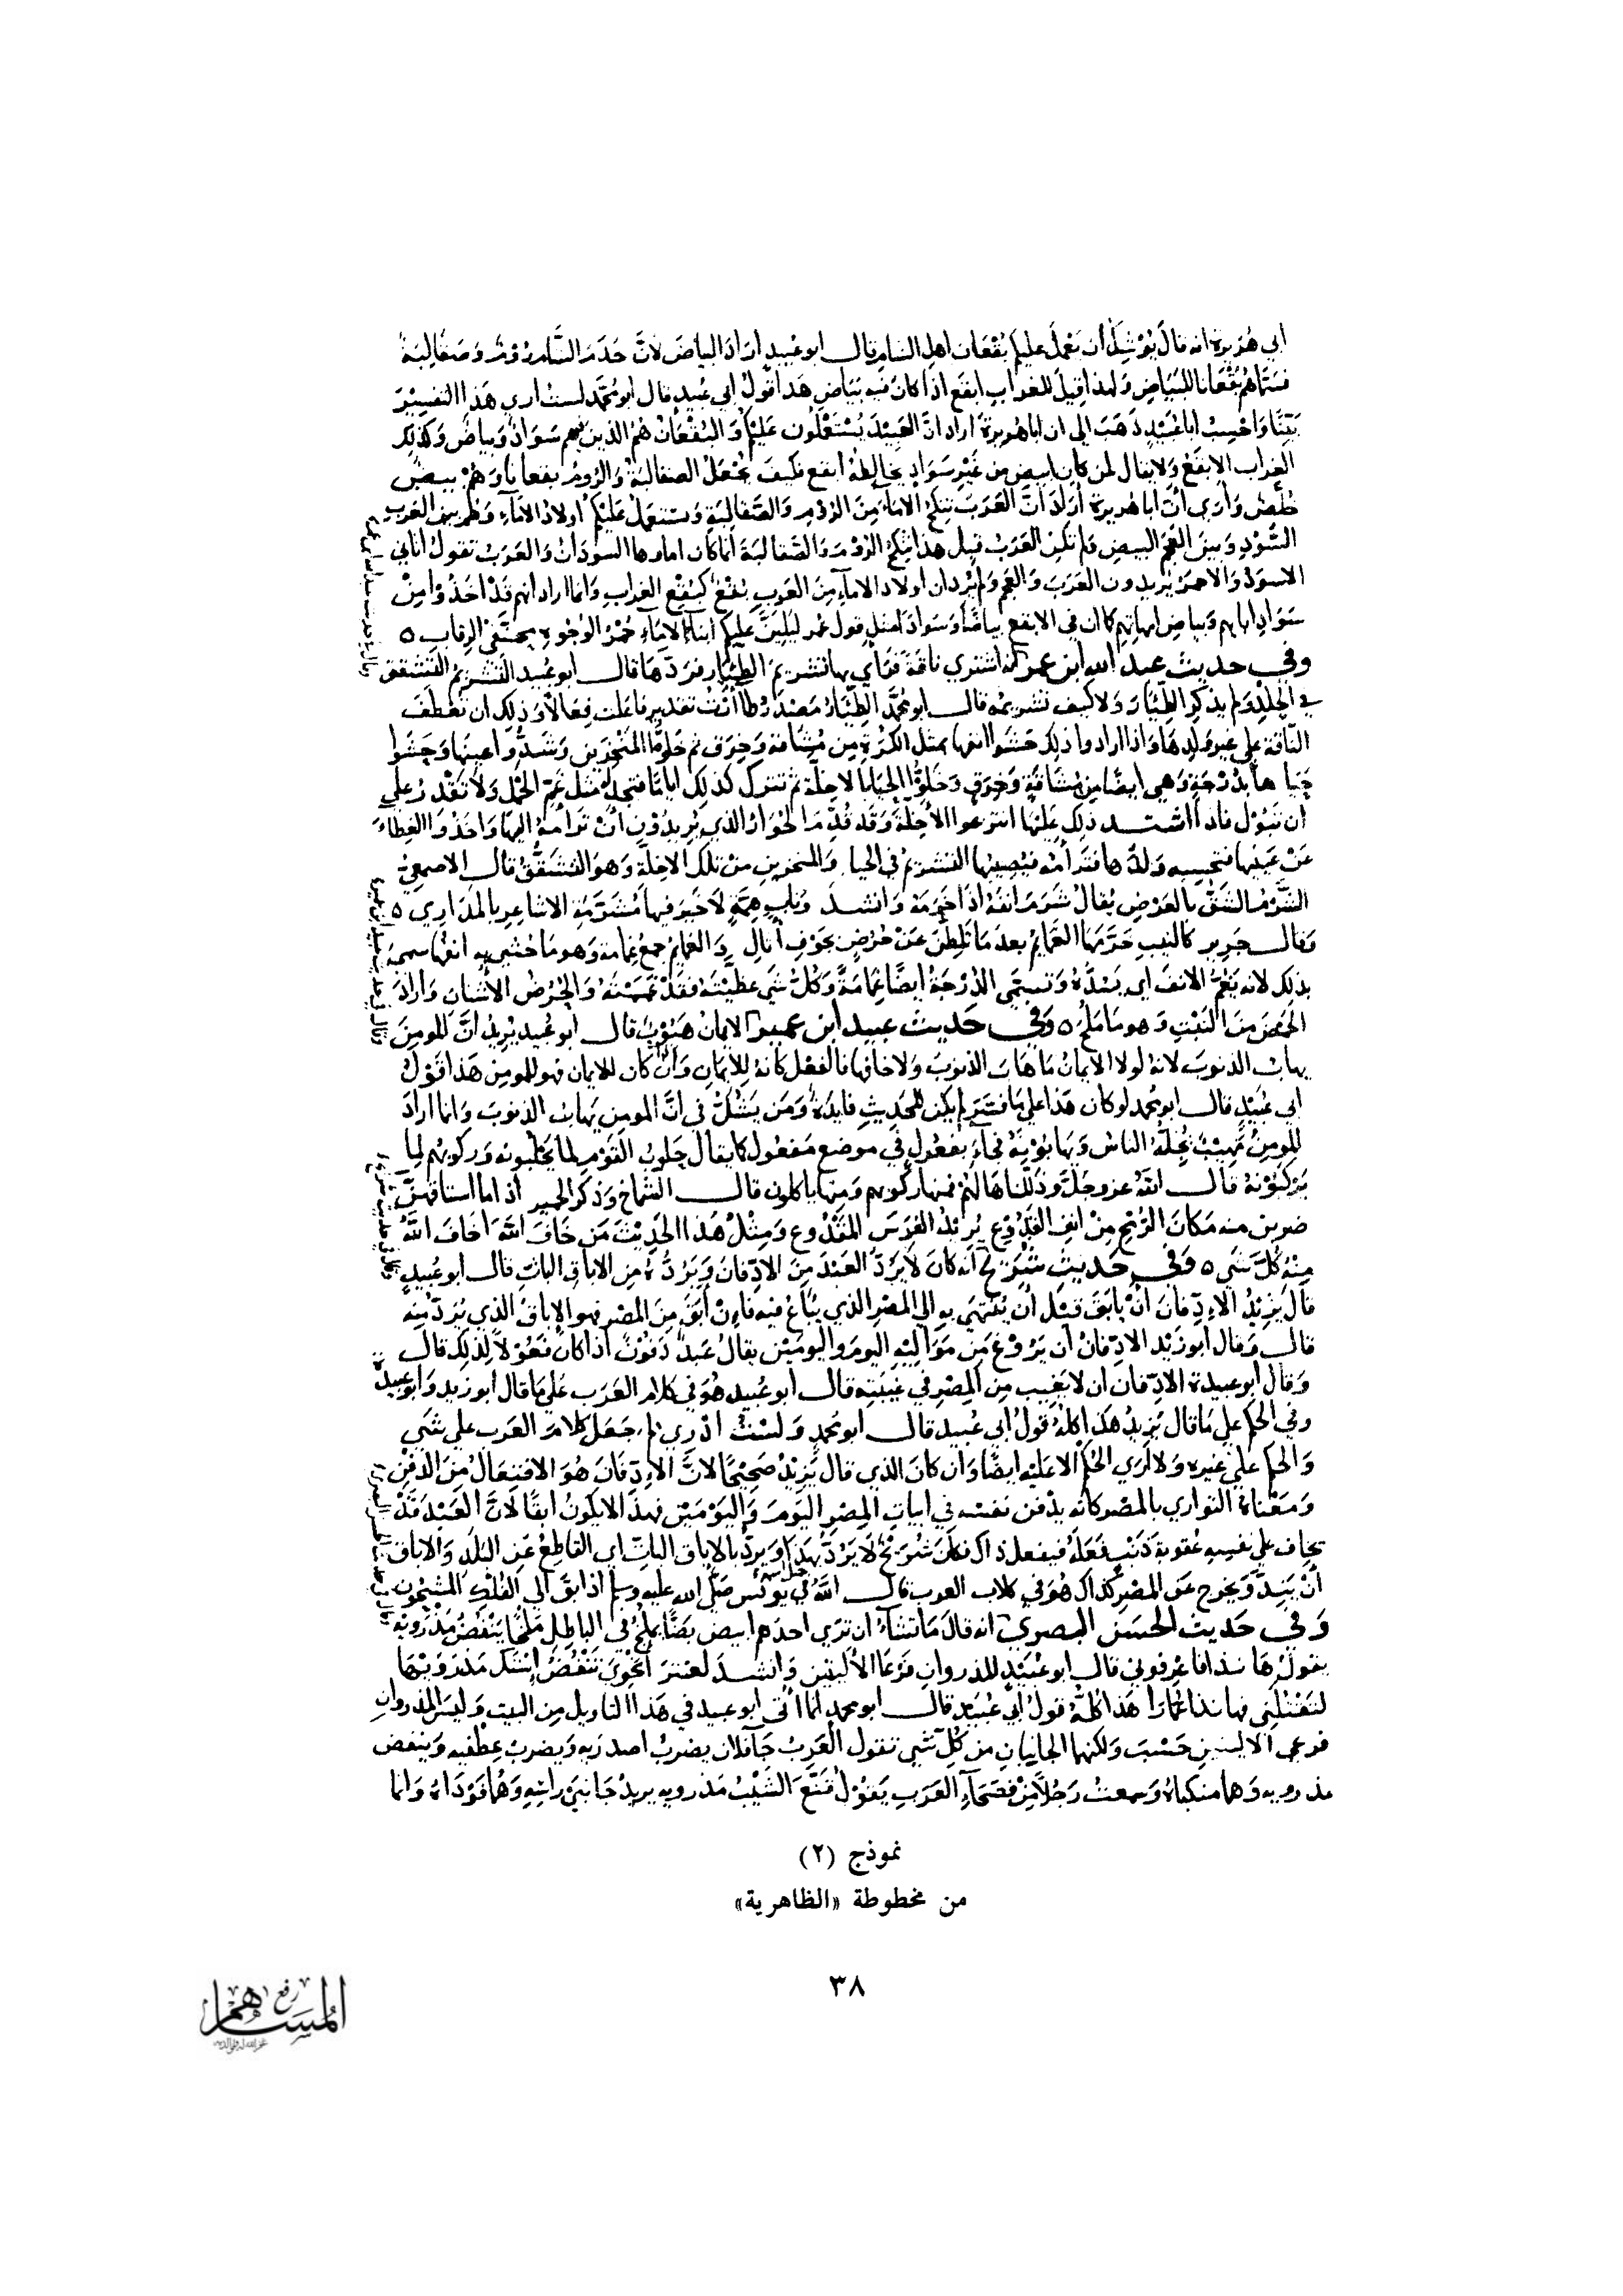 ابي هريرة انه قال يوشك أن يعمل عليكم بقعان اهل الشام قال ابو عبيد اراد البياض لان خدم الشام روم وصقالبة
فسماهم بقعانا للبياض ولهذا قيل للغراب ابقع اذا كان فيه بياض هذا قول ابي عبيد قال ابو محمد لست اري هذا التفسير
بينا واحسب ابا عبيد ذهب الي ان ابا هريرة اراد ان العبيد يستعملون عليكم والبقعان هم الذين فيهم سواد وبياض وكذلك
الغراب الابقع ولا يقال لمن كان ابيض من غير سواد يخالطه ابقع فكيف يجعل الصقالبة والروم بقعانا وهم بيض
خلص وأري أن أبا هريرة أراد أن العرب تنكح الاماء من الروم والصقالبة وستعمل عليكم اولاد الاماء وهم بين العرب
السود وبين العجم البيض ولم تكن العرب قبل هذا تنكح الروم والصقالبة انما كان اماوها السودان والعرب تقول اتاني
الاسود والاحمر يريدون العرب والعجم ولم يرد ان اولاد الاماء من العرب بقع كبقع الغراب وانما اراد انهم قد اخذوا من
سواد ابايهم وبياض امهاتهم كما ان في الابقع بياضا وسوادا مثل قول عمر ليلين عليكم ابناء الاماء حمر الوجوه
وفي حديث عبد الله ابن عمر انه اشتري ناقة فرأي بها تشريم الظئار فردها قال ابو عبيد التشريم التشقق
في الجلد ولم يذكر الظئار ولا كيف تشريمه قال ابو محمد الظئار مصدر ظأرت تقدير فاعلت فعالا وذلك ان تعطف
الناقة علي غير ولدها واذا ارادوا ذلك حشوا انفها بمثل الكرة من مشاقة وخرق ثم خلوا المنخرين وشدوا عينها وحشوا
حياها بدرجة وهي ايضا من مشاقة وخرق وخلوا الحيا بالاخلة ثم تترك كذلك اياما فتجد مثل غم الحمل ولا تقدر علي
ان تبول فاذا اشتد ذلك عليها انتزعوا الأخلة وقد قدم الحوار الذي يريدون أن ترامه اليها واخذوا الغطاء
عن عينها فتحسبه ولدها فترأمه فيصيبها التشريم في الحيا والمنخرين من تلك الاخلة وهو التشقق قال الاصمعي
الشرم الشق بالعرض يقال شرم انفه اذا خرمه وانشد وناب همة لا خير فيها مشرمة الاشاعر بالمداري ٥
وقال جرير كالنيب خرمها الغمايم بعد ما ثلطن عن حرض بجوف أثال والغمايم جمع غمامة وهو ما حشي به انفها سمي
بذلك لانه يغم الانف اي يسده وتسمي الدرجة ايضا غمامة وكل شي غطيته فقد غممته والحرض الأشنان واراد
الحمض من النبت وهو ما ملح ٥ وفي حديث عبيد ابن عمير الايمان هيوب قال ابو عبيد يريد ان المومن
يهاب الذنوب لانه لولا الايمان ما هاب الذنوب ولا خافها فالفعل كانه للايمان وان كان للايمان فهو للمومن هذا قول
ابي عبيد قال ابو محمد لو كان هذا علي ما فسر لم يكن للحديث فايدة ومن يشك في ان المومن يهاب الذنوب وانما اراد
المومن مهيب يجله الناس ويهابونه فجاء بفعول في موضع مفعول كما يقال حلوب القوم لما يحلبونه وركوبهم لما
يركبونه قال الله عز وجل وذللناها لهم فمنها ركوبهم ومنها ياكلون قال الشماخ وذكر الحمير اذا ما استافهن
ضربن منه مكان الرمح من انف القدوع يريد الفرس المقدوع ومثل هذا الحديث من خاف الله اخاف الله
منه كل شي ٥ وفي حديث شريح أنه كان لا يرد العبد من الادفان ويرده من الاباق البات قال ابو عبيد
قال يزيد الادفان أن يأبق قبل أن ينتهي به الي المصر الذي يباع فيه فان أبق من المصر فهو الإباق الذي يرد منه
قال وقال ابو زيد الادفان أن يروغ من مواليه اليوم واليومين يقال عبد دفون اذا كان فعولا لذلك قال
وقال ابو عبيدة الادفان ان لا يغيب من المصر في غيبته قال ابو عبيد هو في كلام العرب علي ما قال ابو زيد وابو عبيدة
وفي الحكم علي ما قال يزيد هذا كله قول ابي عبيد قال ابو محمد ولست ادري لم جعل كلام العرب علي شي
والحكم علي غيره ولا اري الحكم الا عليه ايضا وان كان الذي قال يزيد صحيحا لان الادفان هو الافتعال من الدفن
ومعناه التواري بالمصر كانه يدفن نفسه في ابيات المصر اليوم واليومين فهذا لا يكون ابقا لان العبد قد
يخاف علي نفسه عقوبة ذنب فعله فيفعل ذاك فكان شريح لا يرد بهذا ويرد بالاباق البات اي القاطع عن البلد والاباق
أن يند ويخرج عن المصر كذاك هو في كلام العرب قال الله في يونس صلى الله عليه وسلم اذ ابق الي الفلك المشحون
وفي حديث الحسن البصري انه قال ما تشاء ان تري احدهم ابيض بضا يملخ في الباطل ملخا ينفض مذرويه
يقول ها نذا فاعرفوني قال ابو عبيد المذروان فرعا الأليتين وانشد لعنترة أحولي تنفض استك مذرويها
لتقتلني فها نذا عمارا هذا كله قول ابي عبيد قال ابو محمد انما أتي ابو عبيد في هذا التاويل من البيت وليس المذروان
فرعي الاليتين حسب ولكنهما الجانبان من كل شي تقول العرب جآ فلان يضرب اصدريه ويضرب عطفيه وينفض
مذرويه وهما منكباه وسمعت رجلا من فصحاء العرب يقول قنع الشيب مذرويه يريد جانبي راسه وهما فوداه وانما
نموذج (٢)
من مخطوطة «الظاهرية»
٣٨
رفع
المساهم
غفر الله له ولوالديه